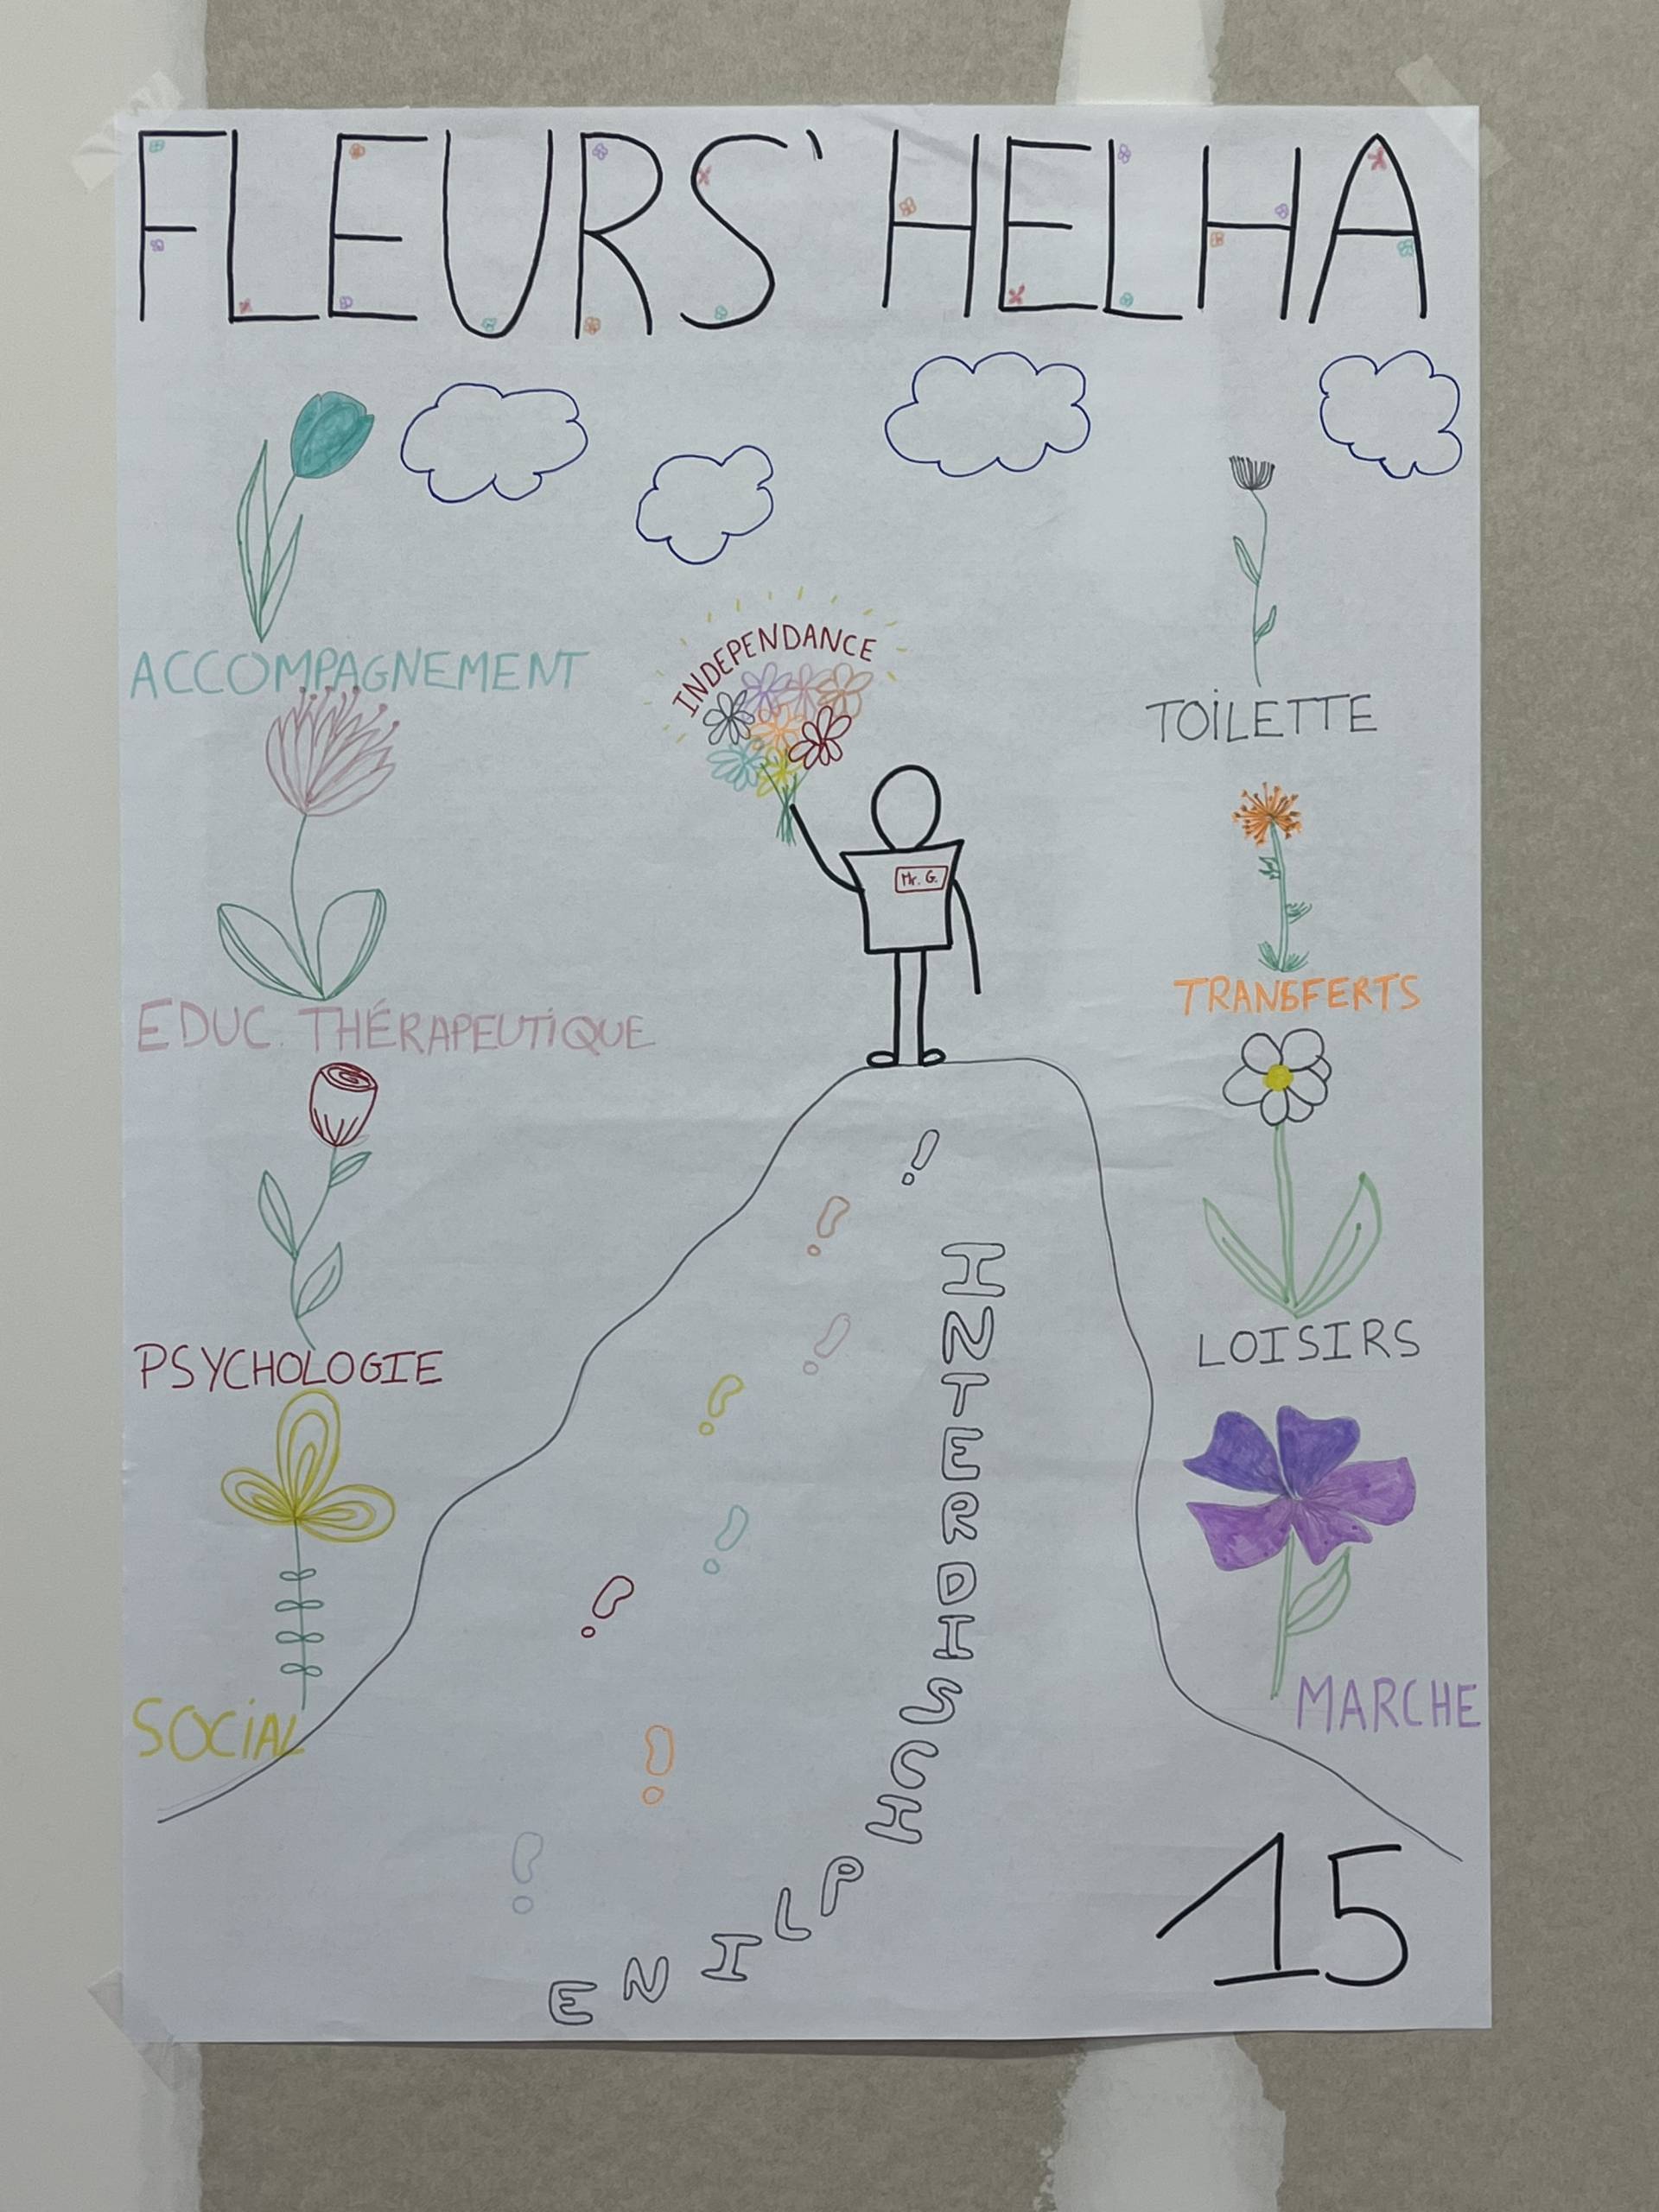 FLEURS' HELHA
ACCOMPAGNEMENT
EDUC. THÉRAPEUTIQUE
PSYCHOLOGIE
SOCIAL
INDEPENDANCE
Mr. G.
INTERDISCHPLINE
TOILETTE
TRANSFERTS
LOISIRS
MARCHE
15